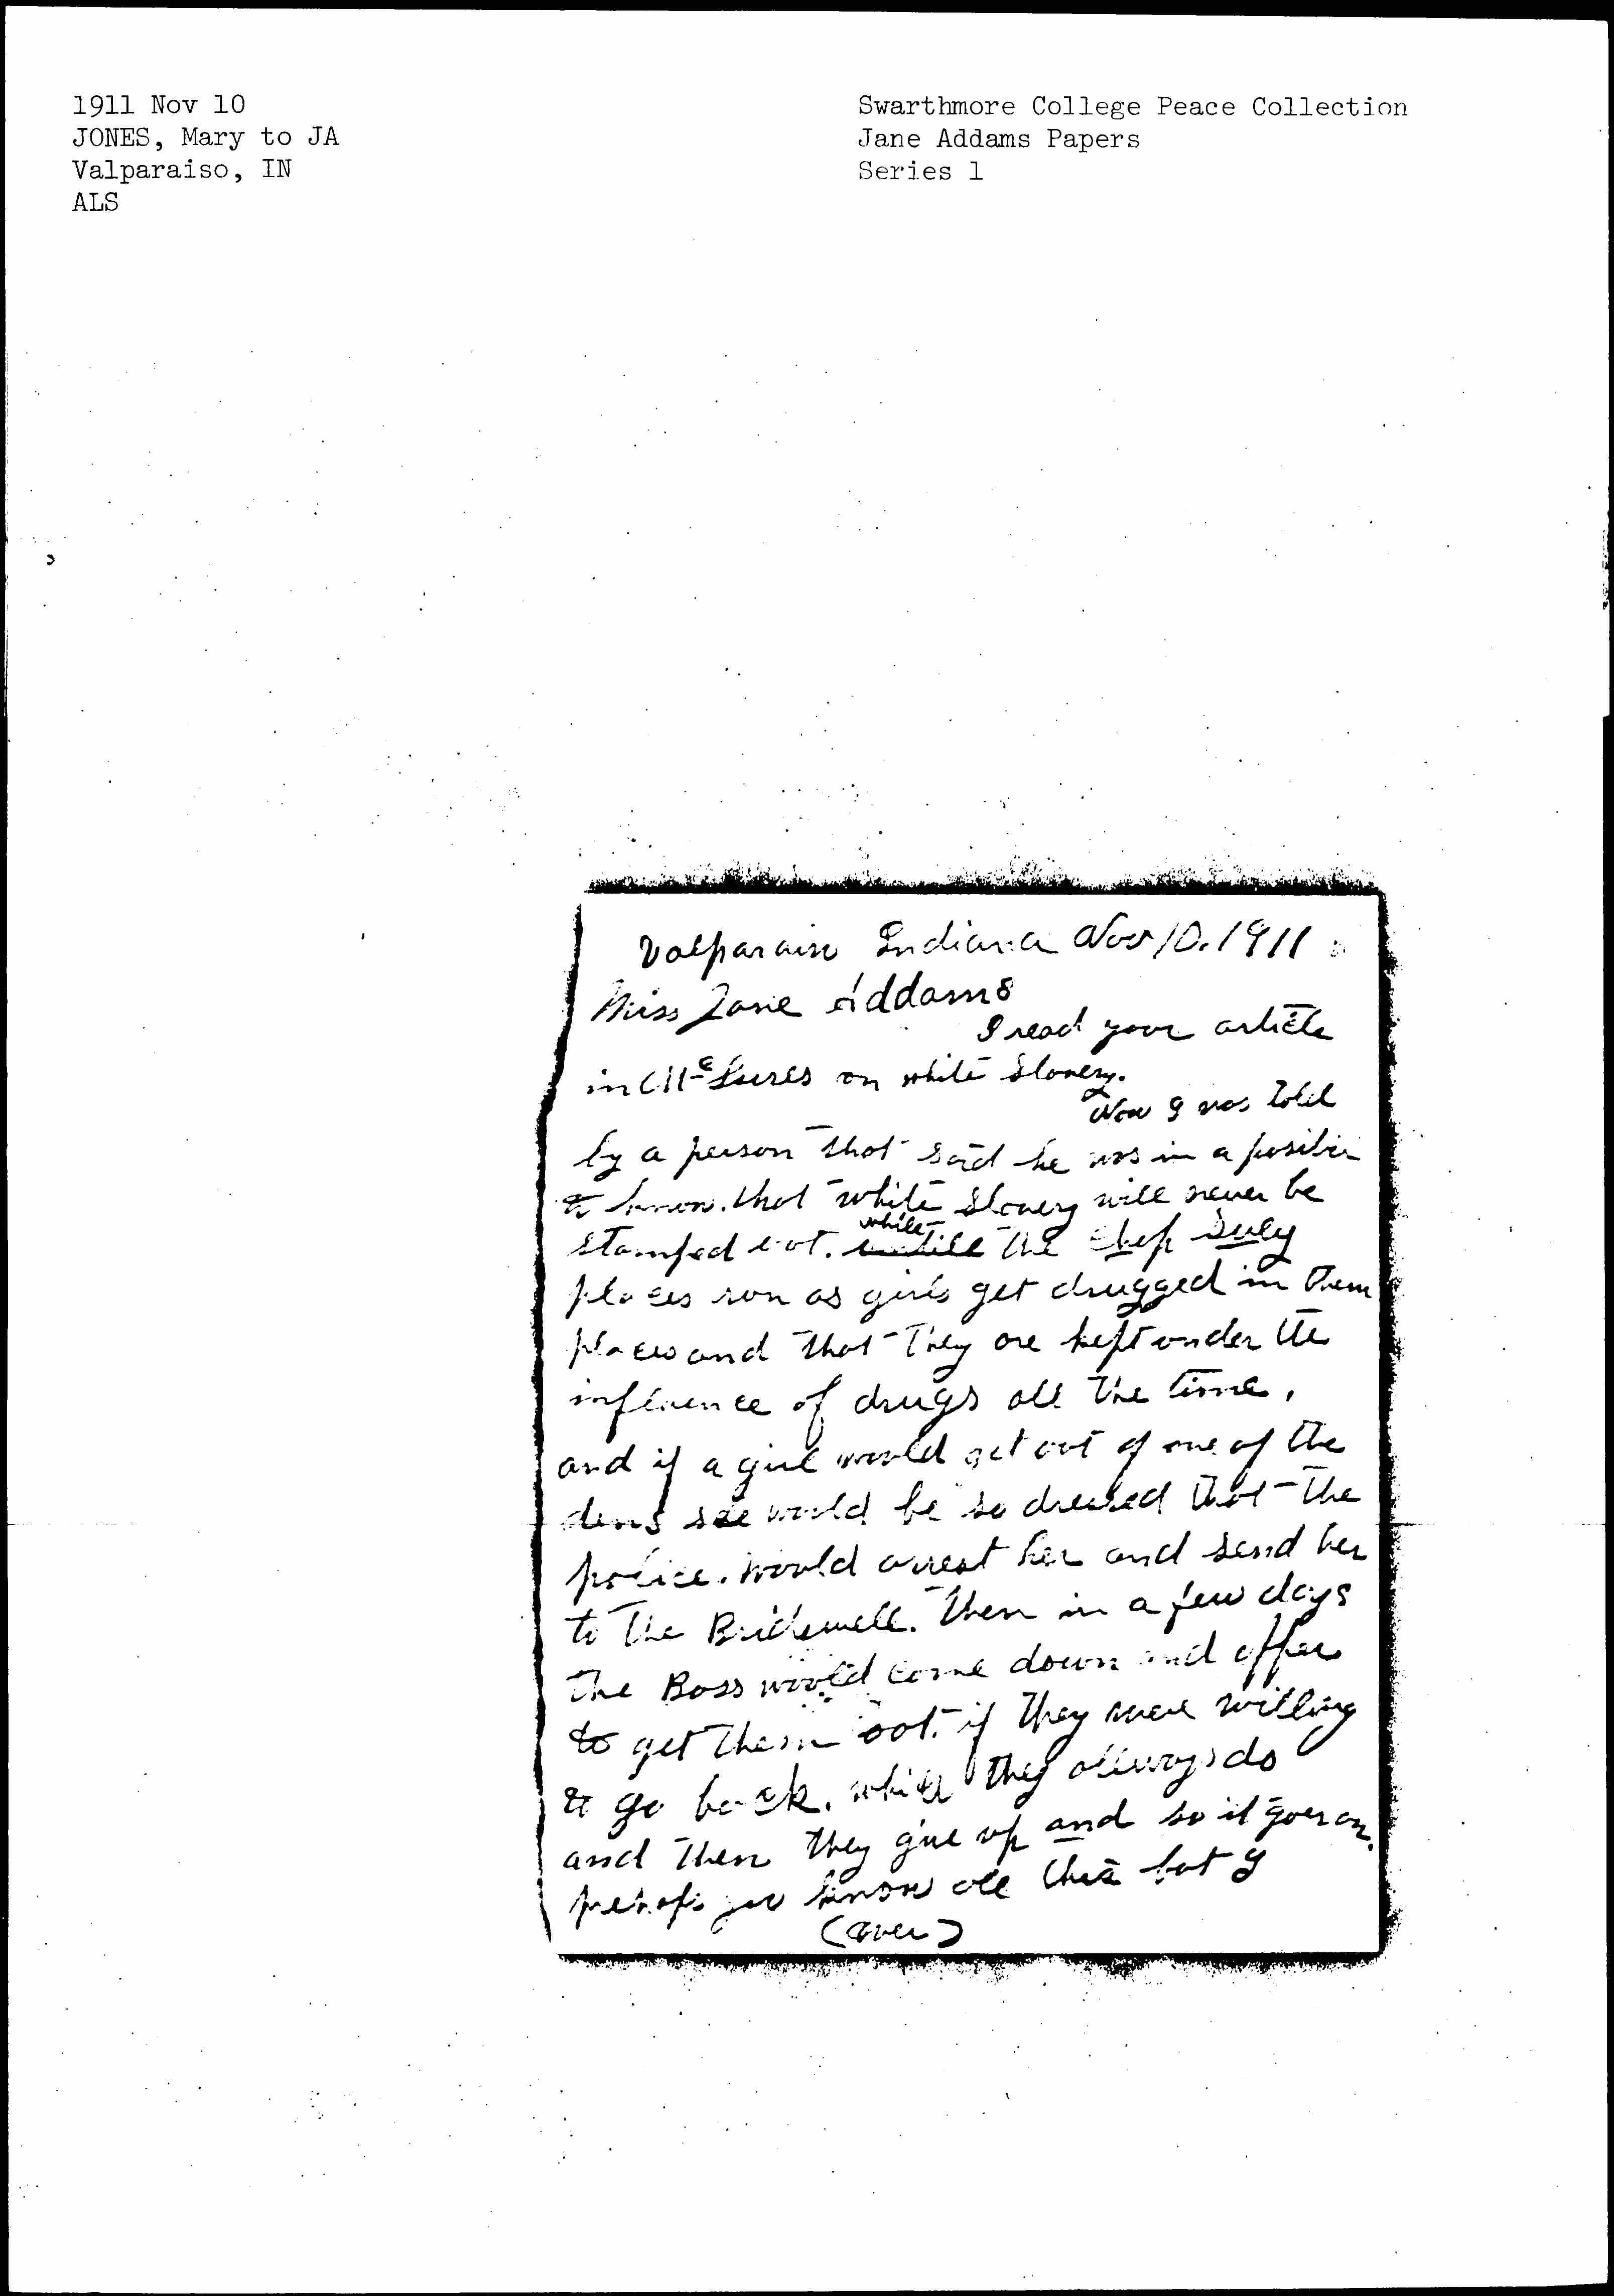 1911 Nov 10
JONES, Mary to JA
Valparaiso, IN
ALS
Swarthmore College Peace Collection
Jane Addams Papers
Series 1
Valparaiso Indiana Nov 10. 1911
Miss Jane Addams
I read your article
in McLures on white Slavery.
Now I was told
by a person that said he was in a position
to know. that white Slavery will never be
stamped out. untill while the Chop Suey
places run as girls get drugged in them
places and that They are kept under the
influence of drugs all the time.
and if a girl would get out of one of the
dens she would be so dressed that the
police. would arrest her and send her
to the Bridewell. then in a few days
the Boss would come down and offer
to get them out. if they were willing
to go back. which they allways do
and then they give up and so it goes on.
perhaps you know all this but I
(over)